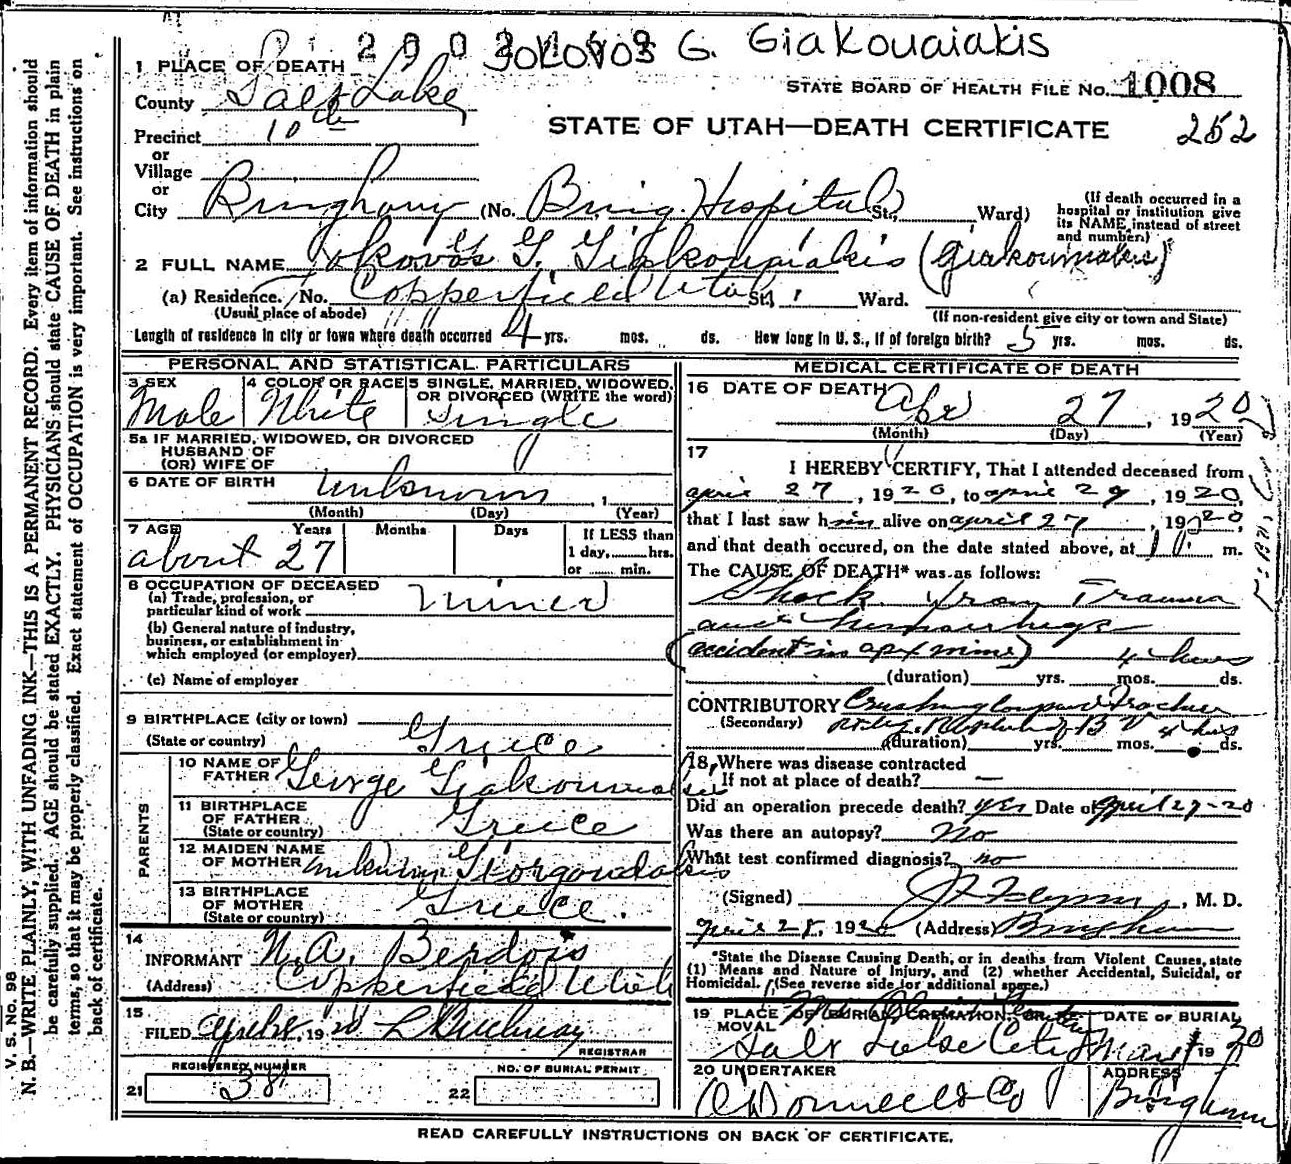 G. Giakouaiakis
1 PLACE OF DEATH
STATE BOARD OF HEALTH FILE No. 1008
County Salt Lake
STATE OF UTAH—DEATH CERTIFICATE
252
Precinct 10th
or
Village
or
City Bingham (No. Bing. Hospital St., Ward)
(If death occurred in a
hospital or institution give
its NAME instead of street
and number.)
2 FULL NAME G. Giakouaiakis
(a) Residence. No. Copperfield Utah St., Ward.
(Usual place of abode)
(If non-resident give city or town and State)
Length of residence in city or town where death occurred 4 yrs. mos. ds. How long in U. S., if of foreign birth? 5 yrs. mos. ds.
PERSONAL AND STATISTICAL PARTICULARS
3 SEX
Male
4 COLOR OR RACE
White
5 SINGLE, MARRIED, WIDOWED,
OR DIVORCED (WRITE the word)
Single
5a IF MARRIED, WIDOWED, OR DIVORCED
HUSBAND OF
(OR) WIFE OF
6 DATE OF BIRTH Unknown
(Month) (Day) (Year)
7 AGE Years Months Days
about 27
If LESS than
1 day, hrs.
or min.
8 OCCUPATION OF DECEASED
(a) Trade, profession, or
particular kind of work miner
(b) General nature of industry,
business, or establishment in
which employed (or employer)
(c) Name of employer
9 BIRTHPLACE (city or town)
(State or country) Greece
PARENTS
10 NAME OF
FATHER George
11 BIRTHPLACE
OF FATHER
(State or country) Greece
12 MAIDEN NAME
OF MOTHER
13 BIRTHPLACE
OF MOTHER
(State or country) Greece.
14
INFORMANT N. A. Berdois
(Address) Copperfield Utah
15
FILED 1920
REGISTRAR
REGISTERED NUMBER
21 38
NO. OF BURIAL PERMIT
22
MEDICAL CERTIFICATE OF DEATH
16 DATE OF DEATH
Apr 27, 1920
(Month) (Day) (Year)
17
I HEREBY CERTIFY, That I attended deceased from
april 27, 1920, to april 29, 1920,
that I last saw him alive on april 27, 1920,
and that death occured, on the date stated above, at 11 m.
The CAUSE OF DEATH* was as follows:
Shock from Trauma
and hemorrhage
(accident in apex mine) 4 hours
(duration) yrs. mos. ds.
CONTRIBUTORY Crushing
(Secondary)
(duration) yrs. mos. ds.
18 Where was disease contracted
If not at place of death? —
Did an operation precede death? yes Date of April 27-20
Was there an autopsy? No
What test confirmed diagnosis? no
(Signed) , M. D.
April 28, 1920 (Address) Bingham
*State the Disease Causing Death, or in deaths from Violent Causes, state
(1) Means and Nature of Injury, and (2) whether Accidental, Suicidal, or
Homicidal. (See reverse side for additional space.)
19 PLACE OF BURIAL, CREMATION, OR RE-
MOVAL
Salt Lake City
DATE OF BURIAL
May 1 1920
20 UNDERTAKER
O'Donnell & Co
ADDRESS
Bingham
READ CAREFULLY INSTRUCTIONS ON BACK OF CERTIFICATE.
V. S. No. 98
N. B.—WRITE PLAINLY, WITH UNFADING INK—THIS IS A PERMANENT RECORD. Every item of information should
be carefully supplied. AGE should be stated EXACTLY. PHYSICIANS should state CAUSE OF DEATH in plain
terms, so that it may be properly classified. Exact statement of OCCUPATION is very important. See instructions on
back of certificate.